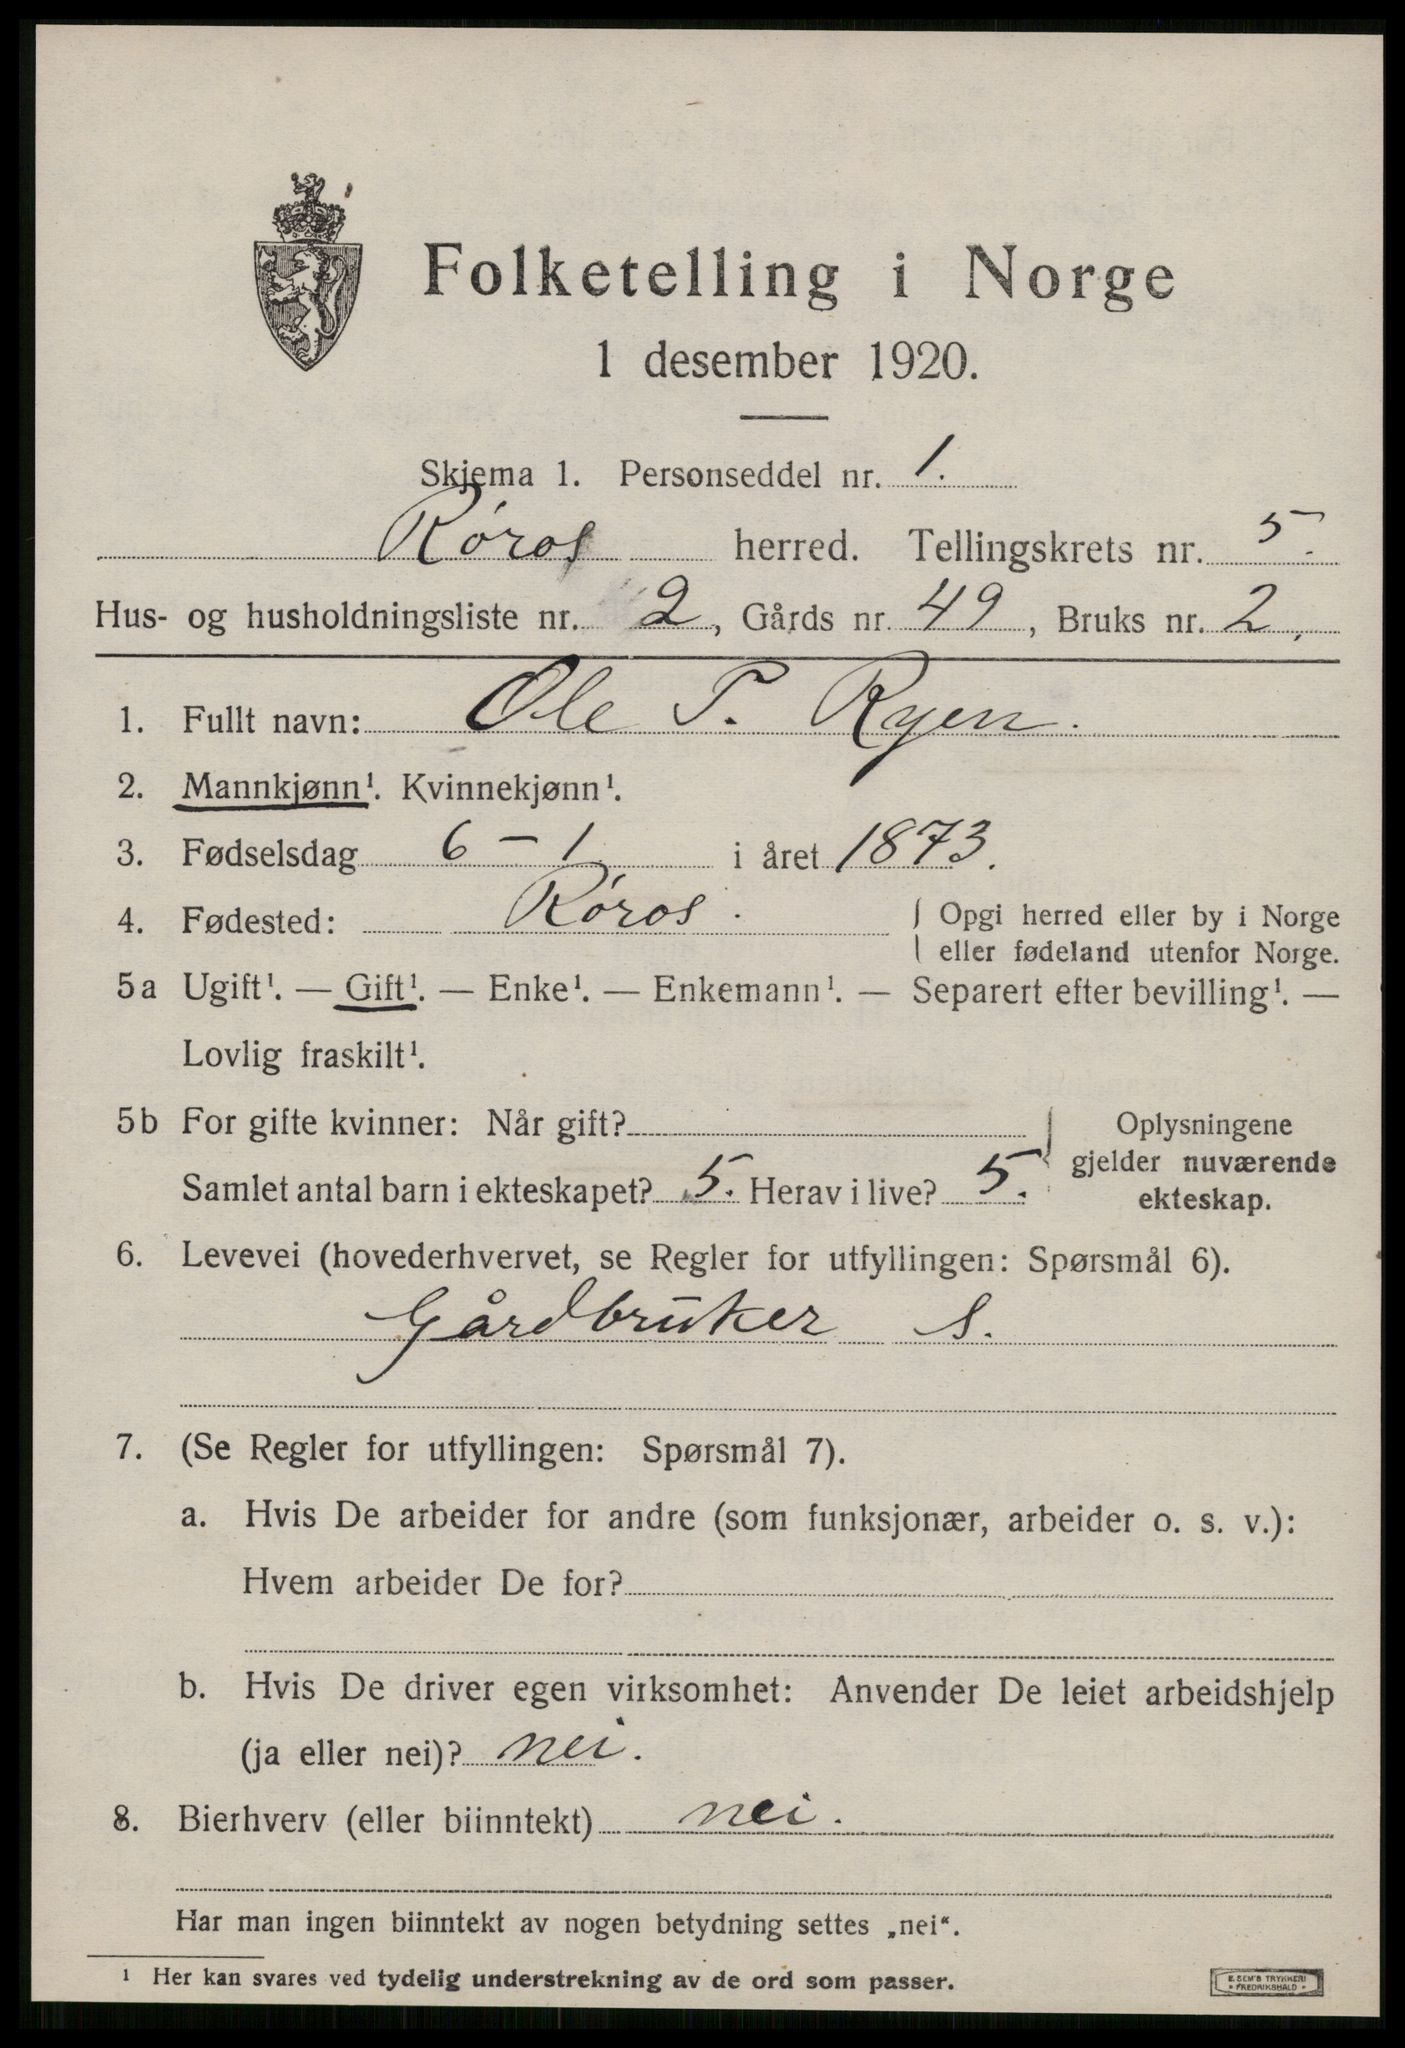 Folketelling i Norge
1 desember 1920.
Skjema 1. Personseddel nr. 1.
Røros herred. Tellingskrets nr. 5.
Hus- og husholdningsliste nr. 2, Gårds nr. 49, Bruks nr. 2.
1. Fullt navn: Ole P. Ryen.
2. Mannkjønn¹. Kvinnekjønn¹.
3. Fødselsdag 6 - 1 i året 1873.
4. Fødested: Røros. Opgi herred eller by i Norge
eller fødeland utenfor Norge.
5a Ugift¹. — Gift¹. — Enke¹. — Enkemann¹. — Separert efter bevilling¹. —
Lovlig fraskilt¹.
5b For gifte kvinner: Når gift? Oplysningene
gjelder nuværende
Samlet antal barn i ekteskapet? 5. Herav i live? 5. ekteskap.
6. Levevei (hovederhvervet, se Regler for utfyllingen: Spørsmål 6).
Gårdbruker S.
7. (Se Regler for utfyllingen: Spørsmål 7).
a. Hvis De arbeider for andre (som funksjonær, arbeider o. s. v.):
Hvem arbeider De for?
b. Hvis De driver egen virksomhet: Anvender De leiet arbeidshjelp
(ja eller nei)? nei.
8. Bierhverv (eller biinntekt) nei.
Har man ingen biinntekt av nogen betydning settes „nei“.
¹ Her kan svares ved tydelig understrekning av de ord som passer.
E. SEM'S TRYKKERI
FREDRIKSHALD